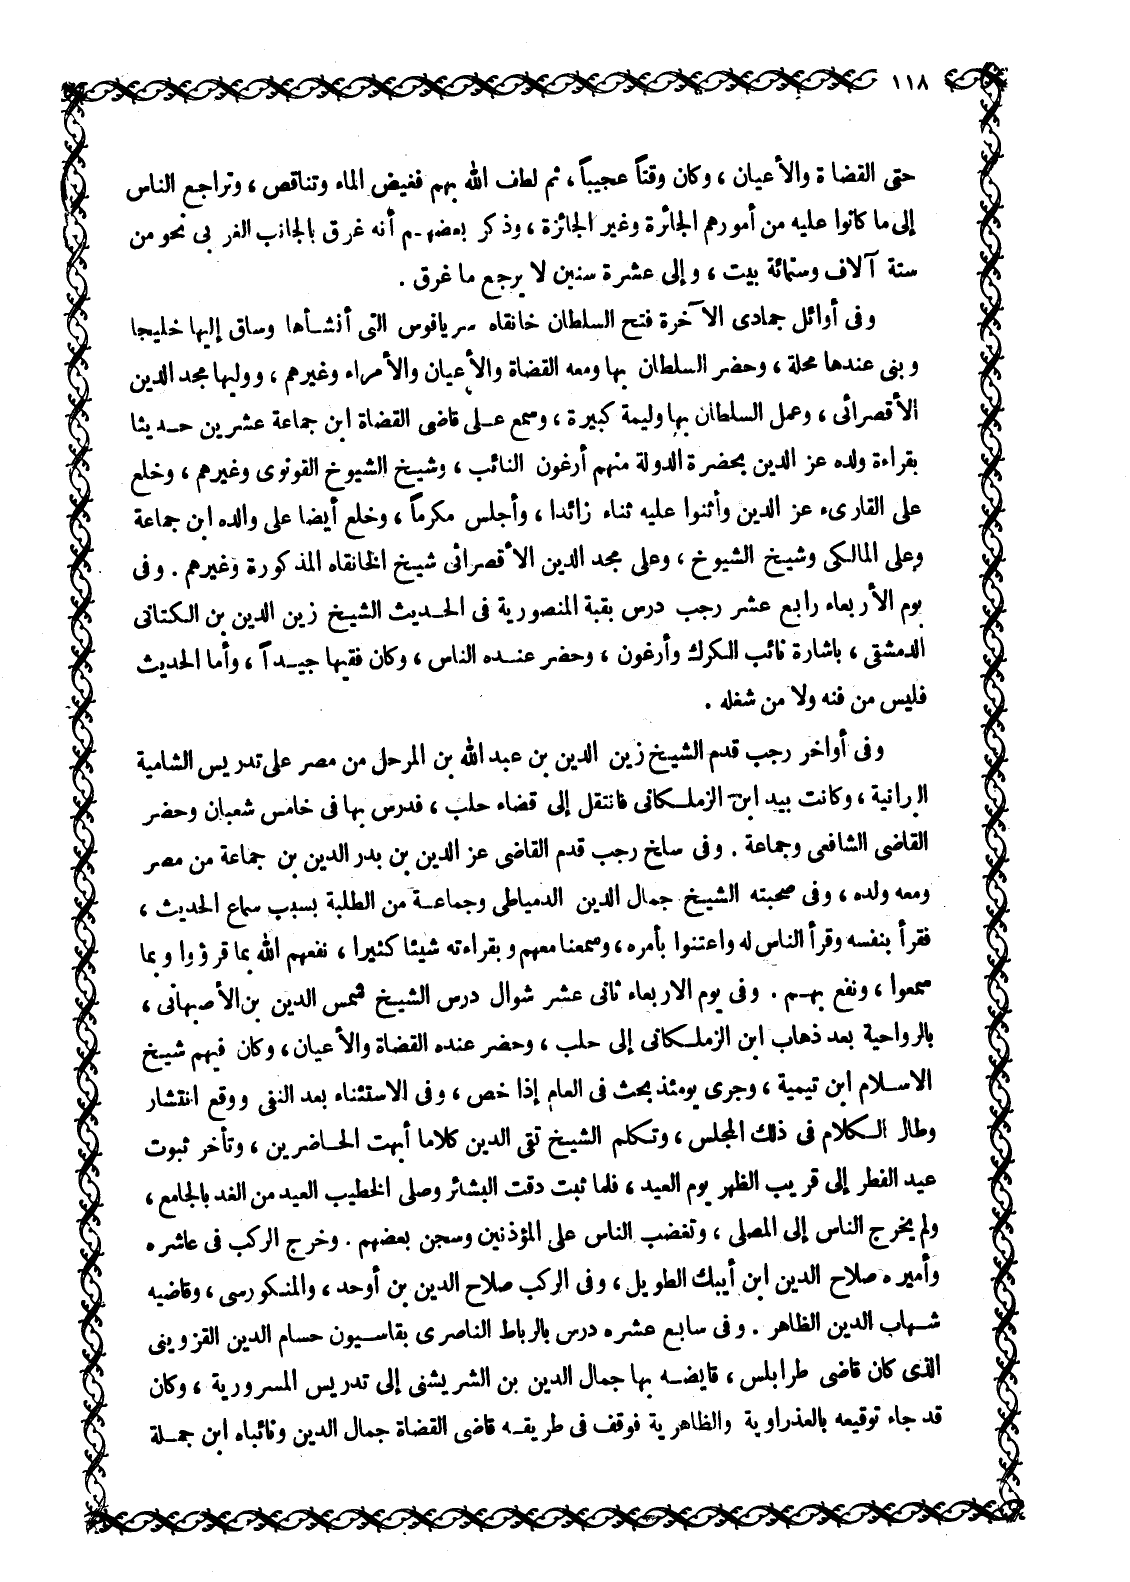 ١١٨
حتى القضاة والأعيان ، وكان وقتاً عجيباً ، ثم لطف الله بهم فغيض الماء وتناقص ، وتراجع الناس
إلى ما كانوا عليه من أمورهم الجائزة وغير الجائزة ، وذكر بعضهم أنه غرق بالجانب الغربى نحو من
ستة آلاف وستمائة بيت ، وإلى عشرة سنين لا يرجع ما غرق .
وفى أوائل جمادى الآخرة فتح السلطان خانقاه سريافوس التى أنشأها وساق إليها خليجا
وبنى عندها محلة ، وحضر السلطان بها ومعه القضاة والأعيان والأمراء وغيرهم ، ووليها مجد الدين
الأقصرائى ، وعمل السلطان بها وليمة كبيرة ، وسمع على قاضى القضاة ابن جماعة عشرين حديثا
بقراءة ولده عز الدين بحضرة الدولة منهم أرغون النائب ، وشيخ الشيوخ القونوى وغيرهم ، وخلع
على القارىء عز الدين وأثنوا عليه ثناء زائدا ، وأجلس مكرماً ، وخلع أيضا على والده ابن جماعة
وعلى المالكى وشيخ الشيوخ ، وعلى مجد الدين الأقصرائى شيخ الخانقاه المذكورة وغيرهم . وفى
يوم الأربعاء رابع عشر رجب درس بقبة المنصورية فى الحديث الشيخ زين الدين بن الكتانى
الدمشقى ، باشارة نائب الكرك وأرغون ، وحضر عنده الناس ، وكان فقيها جيداً ، وأما الحديث
فليس من فنه ولا من شغله .
وفى أواخر رجب قدم الشيخ زين الدين بن عبد الله بن المرحل من مصر على تدريس الشامية
البرانية ، وكانت بيد ابن الزملكانى فانتقل إلى قضاء حلب ، فدرس بها فى خامس شعبان وحضر
القاضى الشافعى وجماعة . وفى سلخ رجب قدم القاضى عز الدين بن بدر الدين بن جماعة من مصر
ومعه ولده ، وفى صحبته الشيخ جمال الدين الدمياطى وجماعة من الطلبة بسبب سماع الحديث ،
فقرأ بنفسه وقرأ الناس له واعتنوا بأمره ، وسمعنا معهم وبقراءته شيئا كثيرا ، نفعهم الله بما قرؤوا وبما
سمعوا ، ونفع بهم . وفى يوم الاربعاء ثانى عشر شوال درس الشيخ شمس الدين بن الأصبهانى ،
بالرواحية بعد ذهاب ابن الزملكانى إلى حلب ، وحضر عنده القضاة والأعيان ، وكان فيهم شيخ
الاسلام ابن تيمية ، وجرى يومئذ بحث فى العام إذا خص ، وفى الاستثناء بعد النفى ووقع انتشار
وطال الكلام فى ذلك المجلس ، وتكلم الشيخ تقى الدين كلاما أبهت الحاضرين ، وتأخر ثبوت
عيد الفطر إلى قريب الظهر يوم العيد ، فلما ثبت دقت البشائر وصلى الخطيب العيد من الغد بالجامع ،
ولم يخرج الناس إلى المصلى ، وتغضب الناس على المؤذنين وسجن بعضهم . وخرج الركب فى عاشره
وأميره صلاح الدين ابن أيبك الطويل ، وفى الركب صلاح الدين بن أوحد ، والمنكورسى ، وقاضيه
شهاب الدين الظاهر . وفى سابع عشره درس بالرباط الناصرى بقاسيون حسام الدين القزوينى
الذى كان قاضى طرابلس ، قايضه بها جمال الدين بن الشريشنى إلى تدريس المسرورية ، وكان
قد جاء توقيعه بالعذراوية والظاهرية فوقف فى طريقه قاضى القضاة جمال الدين ونائباه ابن جملة